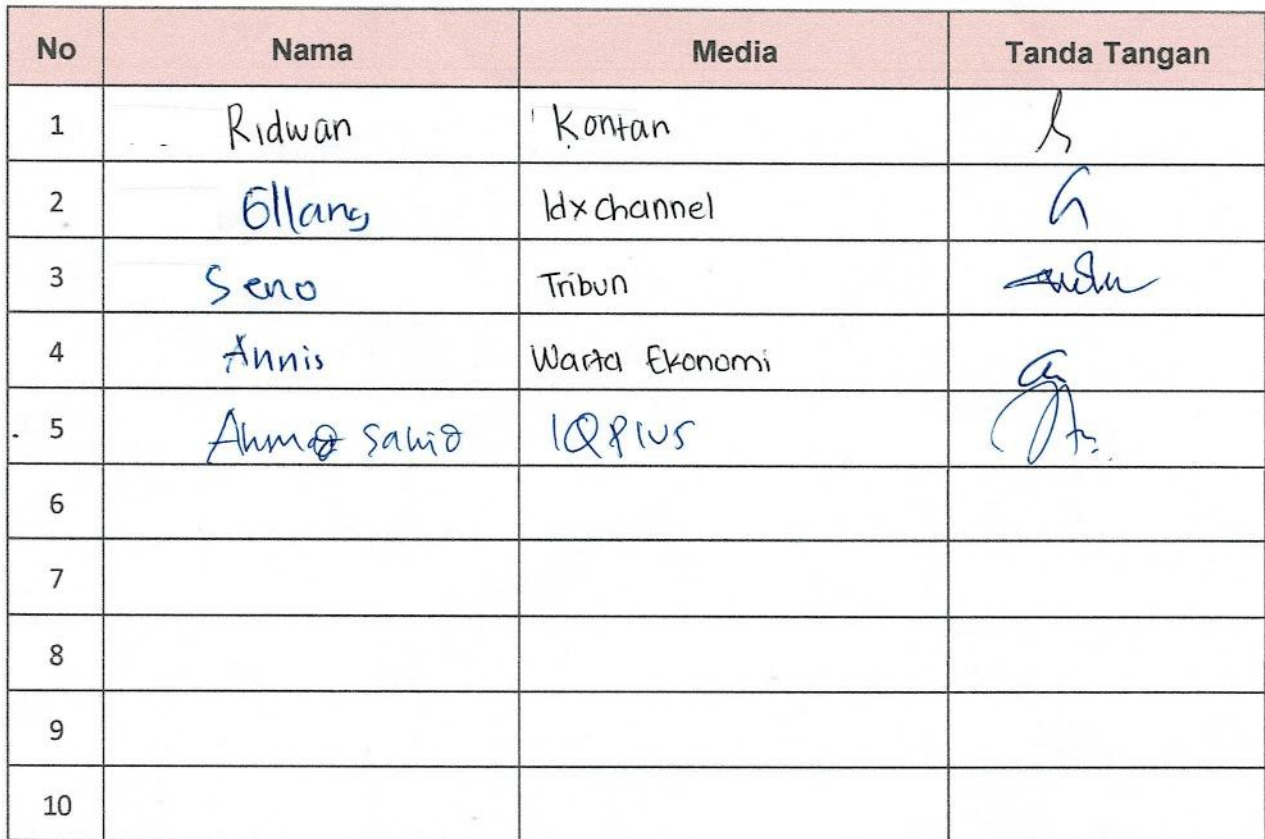 No Nama Media Tanda Tangan
1 Ridwan Kontan
2 Ellang Idx channel
3 Seno Tribun
4 Annis Warta Ekonomi
5 Ahmad Sahid IQPlus
6
7
8
9
10